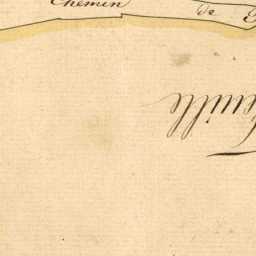 Chemin de
Feuille